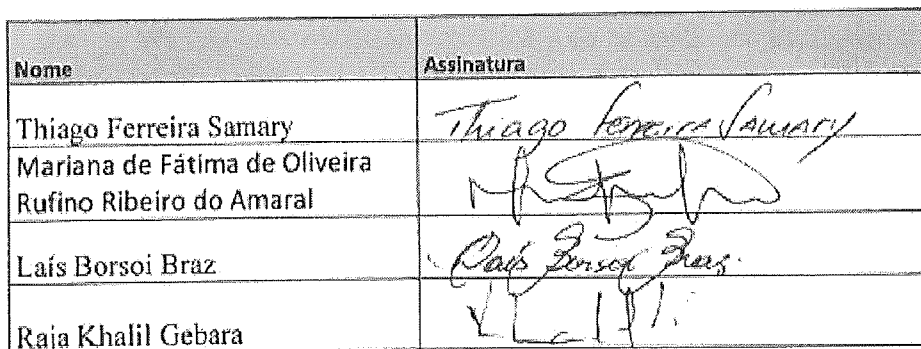 Nome Assinatura
Thiago Ferreira Samary Thiago Ferreira Samary
Mariana de Fátima de Oliveira
Rufino Ribeiro do Amaral
Laís Borsoi Braz Laís Borsoi Braz
Raja Khalil Gebara